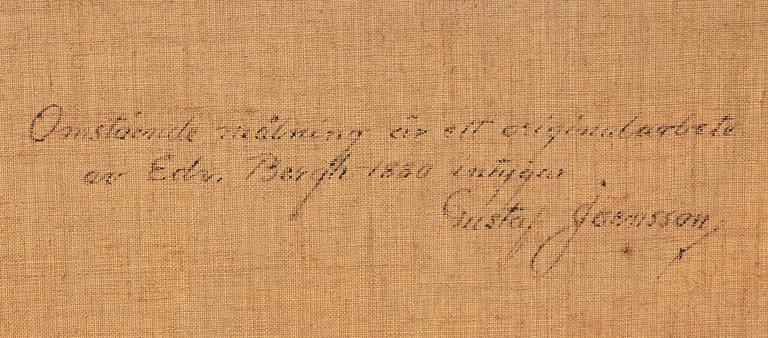 Omstående målning är ett originalarbete
av Edv. Bergh 1850 intygar
Gustaf